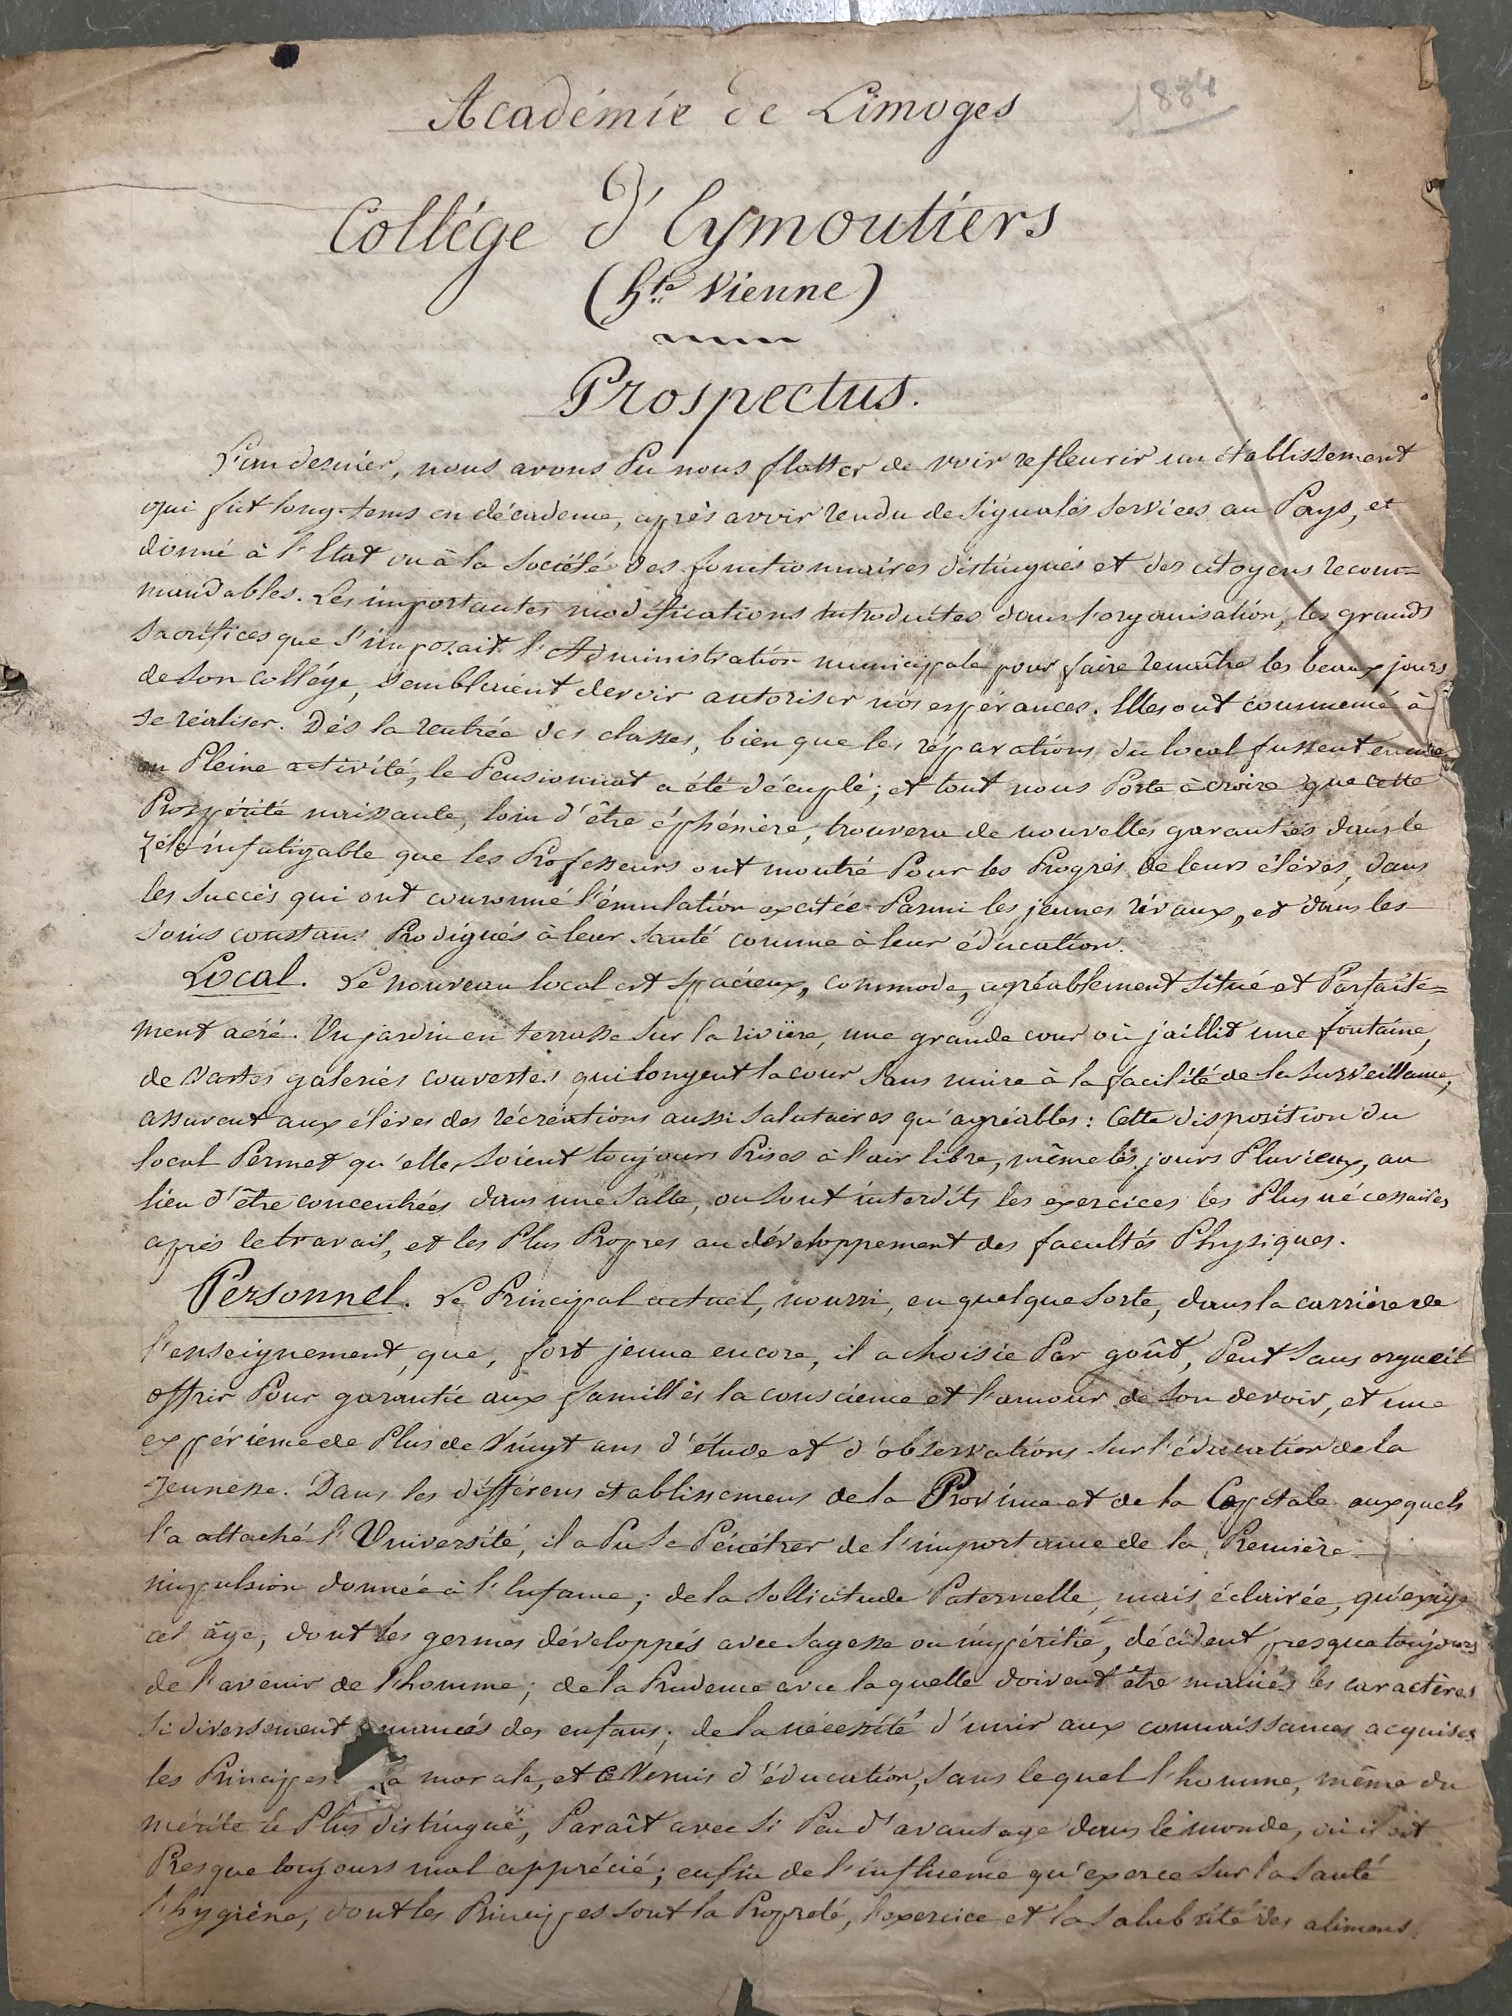 1884
Académie de Limoges
Collége d'Eymoutiers
(hte Vienne)
Prospectus.
L'an dernier, nous avons Pu nous flatter de voir refleurir un établissement
qui fut long-tems en décadence, après avoir rendu de signalés services au Pays, et
donné à l'Etat ou à la Société des fonctionnaires distingués et des citoyens recom=
mandables. Les importantes modifications introduites dans l'organisation, les grands
sacrifices que s'imposait l'Administration municipale pour faire renaître les beaux jours
de son collége, semblaient devoir autoriser nos espérances. Elles ont commencé à
se réaliser. Dès la rentrée des classes, bien que les réparations du local fussent encore
en Pleine activité, le Pensionnat a été décuplé; et tout nous Porte à croire que cette
Prospérité naissante, loin d'être éphémère, trouvera de nouvelles garanties dans le
zèle infatigable que les Professeurs ont montré Pour les Progrès de leurs élèves, dans
les succès qui ont couronné l'émulation excitée Parmi les jeunes rivaux, et dans les
soins constans Prodigués à leur santé comme à leur éducation.
Local. Le nouveau local est spacieux, commode, agréablement situé et Parfaite=
ment aéré. Un jardin en terrasse sur la rivière, une grande cour où jaillit une fontaine,
de vastes galeries couvertes qui longent la cour sans nuire à la facilité de la surveillance,
assurent aux élèves des récréations aussi salutaires qu'agréables: Cette disposition du
local Permet qu'elles soient toujours Prises à l'air libre, même les jours Pluvieux, au
lieu d'être concentrées dans une salle, ou sont interdits les exercices les Plus nécessaires
après le travail, et les Plus Propres au développement des facultés Physiques.
Personnel. Le Principal actuel, nourri, en quelque sorte, dans la carrière de
l'enseignement, que, fort jeune encore, il a choisie Par goût, Peut sans orgueil
offrir Pour garantie aux familles la conscience et l'amour de son devoir, et une
expérience de Plus de Vingt ans d'étude et d'observations sur l'éducation de la
jeunesse. Dans les différens établissemens de la Province et de la Capitale auxquels
l'a attaché l'Université, il a Pu se Pénétrer de l'importance de la Première
impulsion donnée à l'Enfance; de la sollicitude Paternelle, mais éclairée, qu'exige
cet âge, dont les germes développés avec sagesse ou impéritie, décident presque toujours
de l'avenir de l'homme; de la Prudence avec laquelle doivent être maniés les caractères
si diversement nuancés des enfans; de la nécessité d'unir aux connaissances acquises
les Principes la morale, et ce Vernis d'éducation, sans lequel l'homme, même du
mérite le Plus distingué, Paraît avec si Peu d'avantage dans le monde, où il est
Presque toujours mal apprécié; enfin de l'influence qu'exerce sur la santé
l'hygiène, dont les Principes sont la Propreté, l'exercice et la salubrité des alimens.